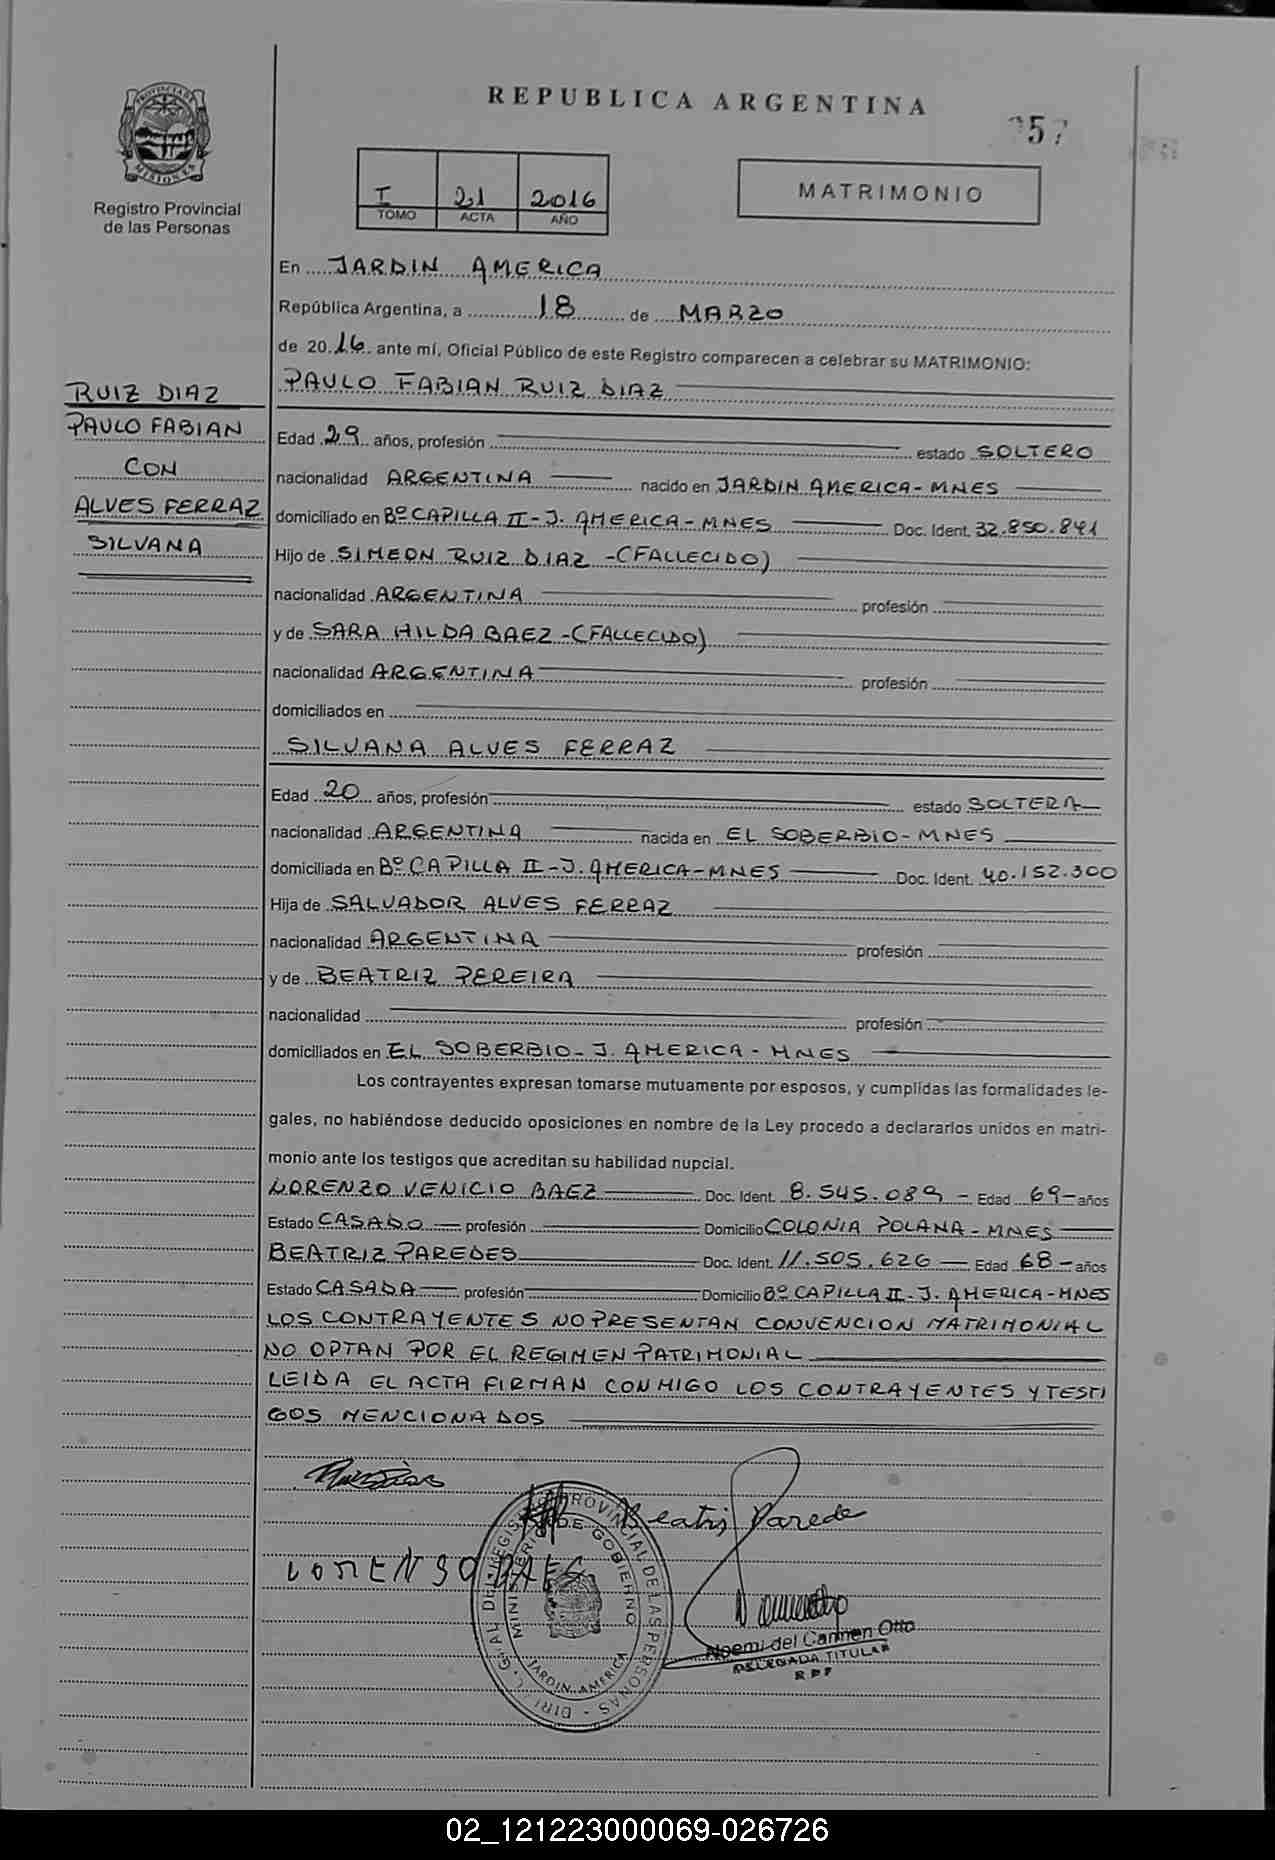 REPUBLICA ARGENTINA
57
PROVINCIA DE
MISIONES
Registro Provincial
de las Personas
I 21 2016
TOMO ACTA AÑO
MATRIMONIO
RUIZ DIAZ
PAULO FABIAN
CON
ALVES FERRAZ
SILVANA
En JARDIN AMERICA
República Argentina, a 18 de MARZO
de 2016 ante mí, Oficial Público de este Registro comparecen a celebrar su MATRIMONIO:
PAULO FABIAN RUIZ DIAZ
Edad 29 años, profesión estado SOLTERO
nacionalidad ARGENTINA nacido en JARDIN AMERICA-MNES
domiciliado en Bº CAPILLA II-J. AMERICA-MNES Doc. Ident. 32.850.841
Hijo de SIMEON RUIZ DIAZ -(FALLECIDO)
nacionalidad ARGENTINA profesión
y de SARA HILDA BAEZ-(FALLECIDO)
nacionalidad ARGENTINA profesión
domiciliados en
SILVANA ALVES FERRAZ
Edad 20 años, profesión estado SOLTERA
nacionalidad ARGENTINA nacida en EL SOBERBIO-MNES
domiciliada en Bº CAPILLA II-J. AMERICA-MNES Doc. Ident. 40.152.300
Hija de SALVADOR ALVES FERRAZ
nacionalidad ARGENTINA profesión
y de BEATRIZ PEREIRA
nacionalidad profesión
domiciliados en EL SOBERBIO-J. AMERICA-MNES
Los contrayentes expresan tomarse mutuamente por esposos, y cumplidas las formalidades le-
gales, no habiéndose deducido oposiciones en nombre de la Ley procedo a declararlos unidos en matri-
monio ante los testigos que acreditan su habilidad nupcial.
LORENZO VENICIO BAEZ Doc. Ident. 8.545.089 - Edad 69- años
Estado CASADO profesión Domicilio COLONIA POLANA-MNES
BEATRIZ PAREDES Doc. Ident. 11.505.626 Edad 68- años
Estado CASADA profesión Domicilio Bº CAPILLA II-J. AMERICA-MNES
LOS CONTRAYENTES NO PRESENTAN CONVENCION MATRIMONIAL
NO OPTAN POR EL REGIMEN PATRIMONIAL
LEIDA EL ACTA FIRMAN CONMIGO LOS CONTRAYENTES Y TESTI
GOS MENCIONADOS
Beatris Parede
LORENSO BAES
PROVINCIAL DE LAS PERSONAS
MINISTERIO DE GOBIERNO
JARDIN AMERICA
Noemi del Carmen Otto
DELEGADA TITULAR
RPP
02_121223000069-026726